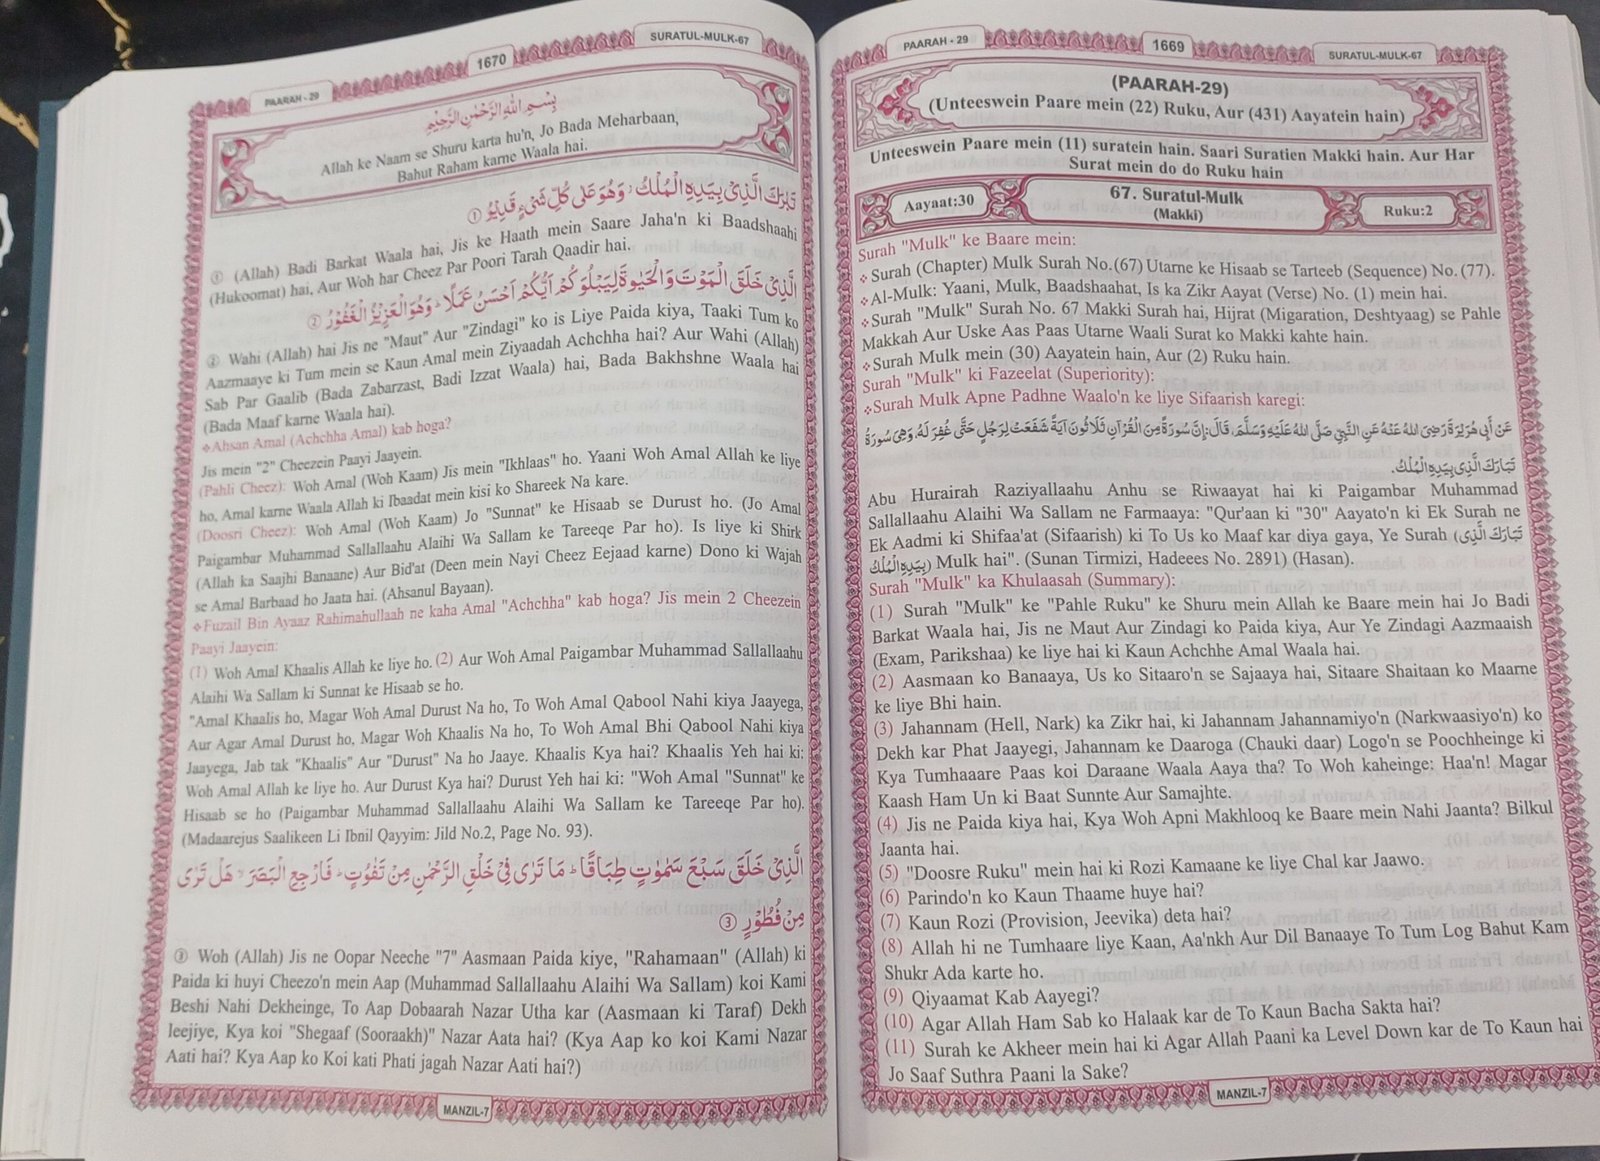 PAARAH - 29
1669
SURATUL-MULK-67
(PAARAH-29)
(Unteeswein Paare mein (22) Ruku, Aur (431) Aayatein hain)
Unteeswein Paare mein (11) suratein hain. Saari Suratien Makki hain. Aur Har
Surat mein do do Ruku hain
Aayaat:30
67. Suratul-Mulk
(Makki)
Ruku:2
Surah "Mulk" ke Baare mein:
❖Surah (Chapter) Mulk Surah No.(67) Utarne ke Hisaab se Tarteeb (Sequence) No. (77).
❖Al-Mulk: Yaani, Mulk, Baadshaahat, Is ka Zikr Aayat (Verse) No. (1) mein hai.
❖Surah "Mulk" Surah No. 67 Makki Surah hai, Hijrat (Migaration, Deshtyaag) se Pahle
Makkah Aur Uske Aas Paas Utarne Waali Surat ko Makki kahte hain.
❖Surah Mulk mein (30) Aayatein hain, Aur (2) Ruku hain.
Surah "Mulk" ki Fazeelat (Superiority):
❖Surah Mulk Apne Padhne Waalo'n ke liye Sifaarish karegi:
عَنْ أَبِي هُرَيْرَةَ رَضِيَ اللهُ عَنْهُ عَنِ النَّبِيِّ صَلَّى اللهُ عَلَيْهِ وَسَلَّمَ، قَالَ: إِنَّ سُورَةً مِنَ الْقُرْآنِ ثَلَاثُونَ آيَةً شَفَعَتْ لِرَجُلٍ حَتَّى غُفِرَ لَهُ، وَهِيَ سُورَةُ
تَبَارَكَ الَّذِي بِيَدِهِ الْمُلْكُ.
Abu Hurairah Raziyallaahu Anhu se Riwaayat hai ki Paigambar Muhammad
Sallallaahu Alaihi Wa Sallam ne Farmaaya: "Qur'aan ki "30" Aayato'n ki Ek Surah ne
Ek Aadmi ki Shifaa'at (Sifaarish) ki To Us ko Maaf kar diya gaya, Ye Surah (تَبَارَكَ الَّذِي
بِيَدِهِ الْمُلْكُ) Mulk hai". (Sunan Tirmizi, Hadeees No. 2891) (Hasan).
Surah "Mulk" ka Khulaasah (Summary):
(1) Surah "Mulk" ke "Pahle Ruku" ke Shuru mein Allah ke Baare mein hai Jo Badi
Barkat Waala hai, Jis ne Maut Aur Zindagi ko Paida kiya, Aur Ye Zindagi Aazmaaish
(Exam, Parikshaa) ke liye hai ki Kaun Achchhe Amal Waala hai.
(2) Aasmaan ko Banaaya, Us ko Sitaaro'n se Sajaaya hai, Sitaare Shaitaan ko Maarne
ke liye Bhi hain.
(3) Jahannam (Hell, Nark) ka Zikr hai, ki Jahannam Jahannamiyo'n (Narkwaasiyo'n) ko
Dekh kar Phat Jaayegi, Jahannam ke Daaroga (Chauki daar) Logo'n se Poochheinge ki
Kya Tumhaaare Paas koi Daraane Waala Aaya tha? To Woh kaheinge: Haa'n! Magar
Kaash Ham Un ki Baat Sunnte Aur Samajhte.
(4) Jis ne Paida kiya hai, Kya Woh Apni Makhlooq ke Baare mein Nahi Jaanta? Bilkul
Jaanta hai.
(5) "Doosre Ruku" mein hai ki Rozi Kamaane ke liye Chal kar Jaawo.
(6) Parindo'n ko Kaun Thaame huye hai?
(7) Kaun Rozi (Provision, Jeevika) deta hai?
(8) Allah hi ne Tumhaare liye Kaan, Aa'nkh Aur Dil Banaaye To Tum Log Bahut Kam
Shukr Ada karte ho.
(9) Qiyaamat Kab Aayegi?
(10) Agar Allah Ham Sab ko Halaak kar de To Kaun Bacha Sakta hai?
(11) Surah ke Akheer mein hai ki Agar Allah Paani ka Level Down kar de To Kaun hai
Jo Saaf Suthra Paani la Sake?
MANZIL-7
PAARAH - 29
1670
SURATUL-MULK-67
بِسْمِ اللهِ الرَّحْمٰنِ الرَّحِيْمِ
Allah ke Naam se Shuru karta hu'n, Jo Bada Meharbaan,
Bahut Raham karne Waala hai.
تَبٰرَكَ الَّذِيْ بِيَدِهِ الْمُلْكُ ۡ وَهُوَ عَلٰى كُلِّ شَيْءٍ قَدِيْرُ ①
① (Allah) Badi Barkat Waala hai, Jis ke Haath mein Saare Jaha'n ki Baadshaahi
(Hukoomat) hai, Aur Woh har Cheez Par Poori Tarah Qaadir hai.
الَّذِيْ خَلَقَ الْمَوْتَ وَالْحَيٰوةَ لِيَبْلُوَكُمْ اَيُّكُمْ اَحْسَنُ عَمَلًا ؕ وَهُوَ الْعَزِيْزُ الْغَفُوْرُ ②
② Wahi (Allah) hai Jis ne "Maut" Aur "Zindagi" ko is Liye Paida kiya, Taaki Tum ko
Aazmaaye ki Tum mein se Kaun Amal mein Ziyaadah Achchha hai? Aur Wahi (Allah)
Sab Par Gaalib (Bada Zabarzast, Badi Izzat Waala) hai, Bada Bakhshne Waala hai
(Bada Maaf karne Waala hai).
❖Ahsan Amal (Achchha Amal) kab hoga?
Jis mein "2" Cheezein Paayi Jaayein.
(Pahli Cheez): Woh Amal (Woh Kaam) Jis mein "Ikhlaas" ho. Yaani Woh Amal Allah ke liye
ho, Amal karne Waala Allah ki Ibaadat mein kisi ko Shareek Na kare.
(Doosri Cheez): Woh Amal (Woh Kaam) Jo "Sunnat" ke Hisaab se Durust ho. (Jo Amal
Paigambar Muhammad Sallallaahu Alaihi Wa Sallam ke Tareeqe Par ho). Is liye ki Shirk
(Allah ka Saajhi Banaane) Aur Bid'at (Deen mein Nayi Cheez Eejaad karne) Dono ki Wajah
se Amal Barbaad ho Jaata hai. (Ahsanul Bayaan).
❖Fuzail Bin Ayaaz Rahimahullaah ne kaha Amal "Achchha" kab hoga? Jis mein 2 Cheezein
Paayi Jaayein:
(1) Woh Amal Khaalis Allah ke liye ho. (2) Aur Woh Amal Paigambar Muhammad Sallallaahu
Alaihi Wa Sallam ki Sunnat ke Hisaab se ho.
"Amal Khaalis ho, Magar Woh Amal Durust Na ho, To Woh Amal Qabool Nahi kiya Jaayega,
Aur Agar Amal Durust ho, Magar Woh Khaalis Na ho, To Woh Amal Bhi Qabool Nahi kiya
Jaayega, Jab tak "Khaalis" Aur "Durust" Na ho Jaaye. Khaalis Kya hai? Khaalis Yeh hai ki:
Woh Amal Allah ke liye ho. Aur Durust Kya hai? Durust Yeh hai ki: "Woh Amal "Sunnat" ke
Hisaab se ho (Paigambar Muhammad Sallallaahu Alaihi Wa Sallam ke Tareeqe Par ho).
(Madaarejus Saalikeen Li Ibnil Qayyim: Jild No.2, Page No. 93).
الَّذِيْ خَلَقَ سَبْعَ سَمٰوٰتٍ طِبَاقًا ؕ مَا تَرٰى فِيْ خَلْقِ الرَّحْمٰنِ مِنْ تَفٰوُتٍ ؕ فَارْجِعِ الْبَصَرَ ۙ هَلْ تَرٰى
مِنْ فُطُوْرٍ ③
③ Woh (Allah) Jis ne Oopar Neeche "7" Aasmaan Paida kiye, "Rahamaan" (Allah) ki
Paida ki huyi Cheezo'n mein Aap (Muhammad Sallallaahu Alaihi Wa Sallam) koi Kami
Beshi Nahi Dekheinge, To Aap Dobaarah Nazar Utha kar (Aasmaan ki Taraf) Dekh
leejiye, Kya koi "Shegaaf (Sooraakh)" Nazar Aata hai? (Kya Aap ko koi Kami Nazar
Aati hai? Kya Aap ko Koi kati Phati jagah Nazar Aati hai?)
MANZIL-7